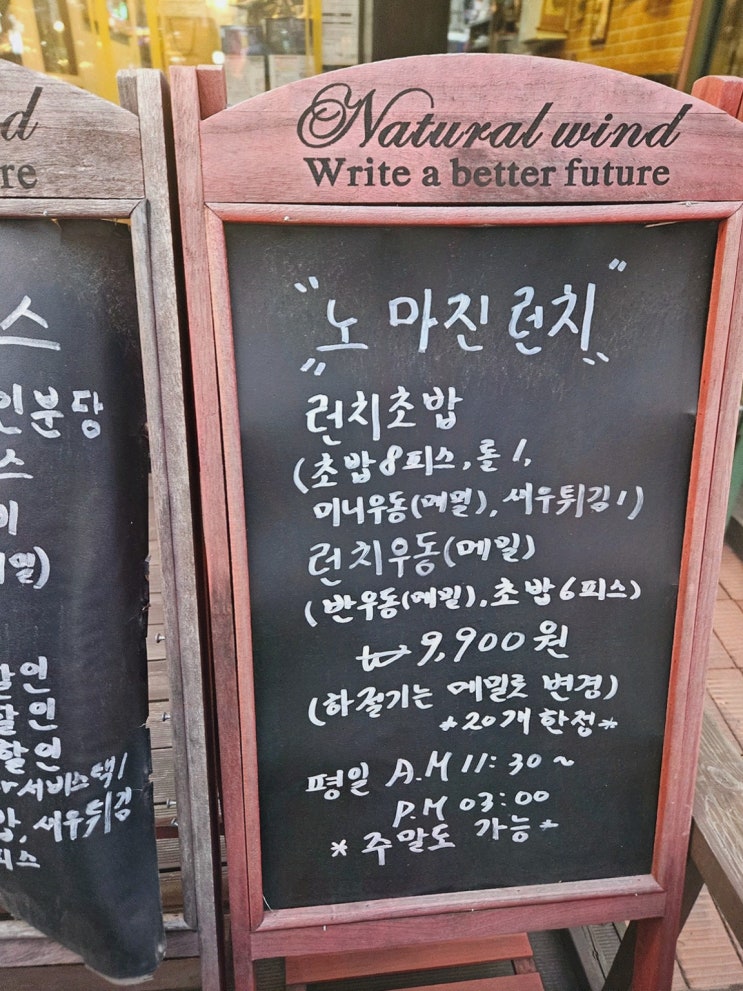 d
re
스
인분당
스
이
밀)
할인
할인
할인
서비스택1
밥, 새우튀김
피스
Natural wind
Write a better future
"노 마진 런치"
런치초밥
(초밥8피스, 롤1,
미니우동(메밀), 새우튀김1)
런치우동(메밀)
(반우동(메밀), 초밥6피스)
9,900원
(하절기는 메밀로 변경)
*20개 한정*
평일 A.M 11:30~
P.M 03:00
*주말도 가능*